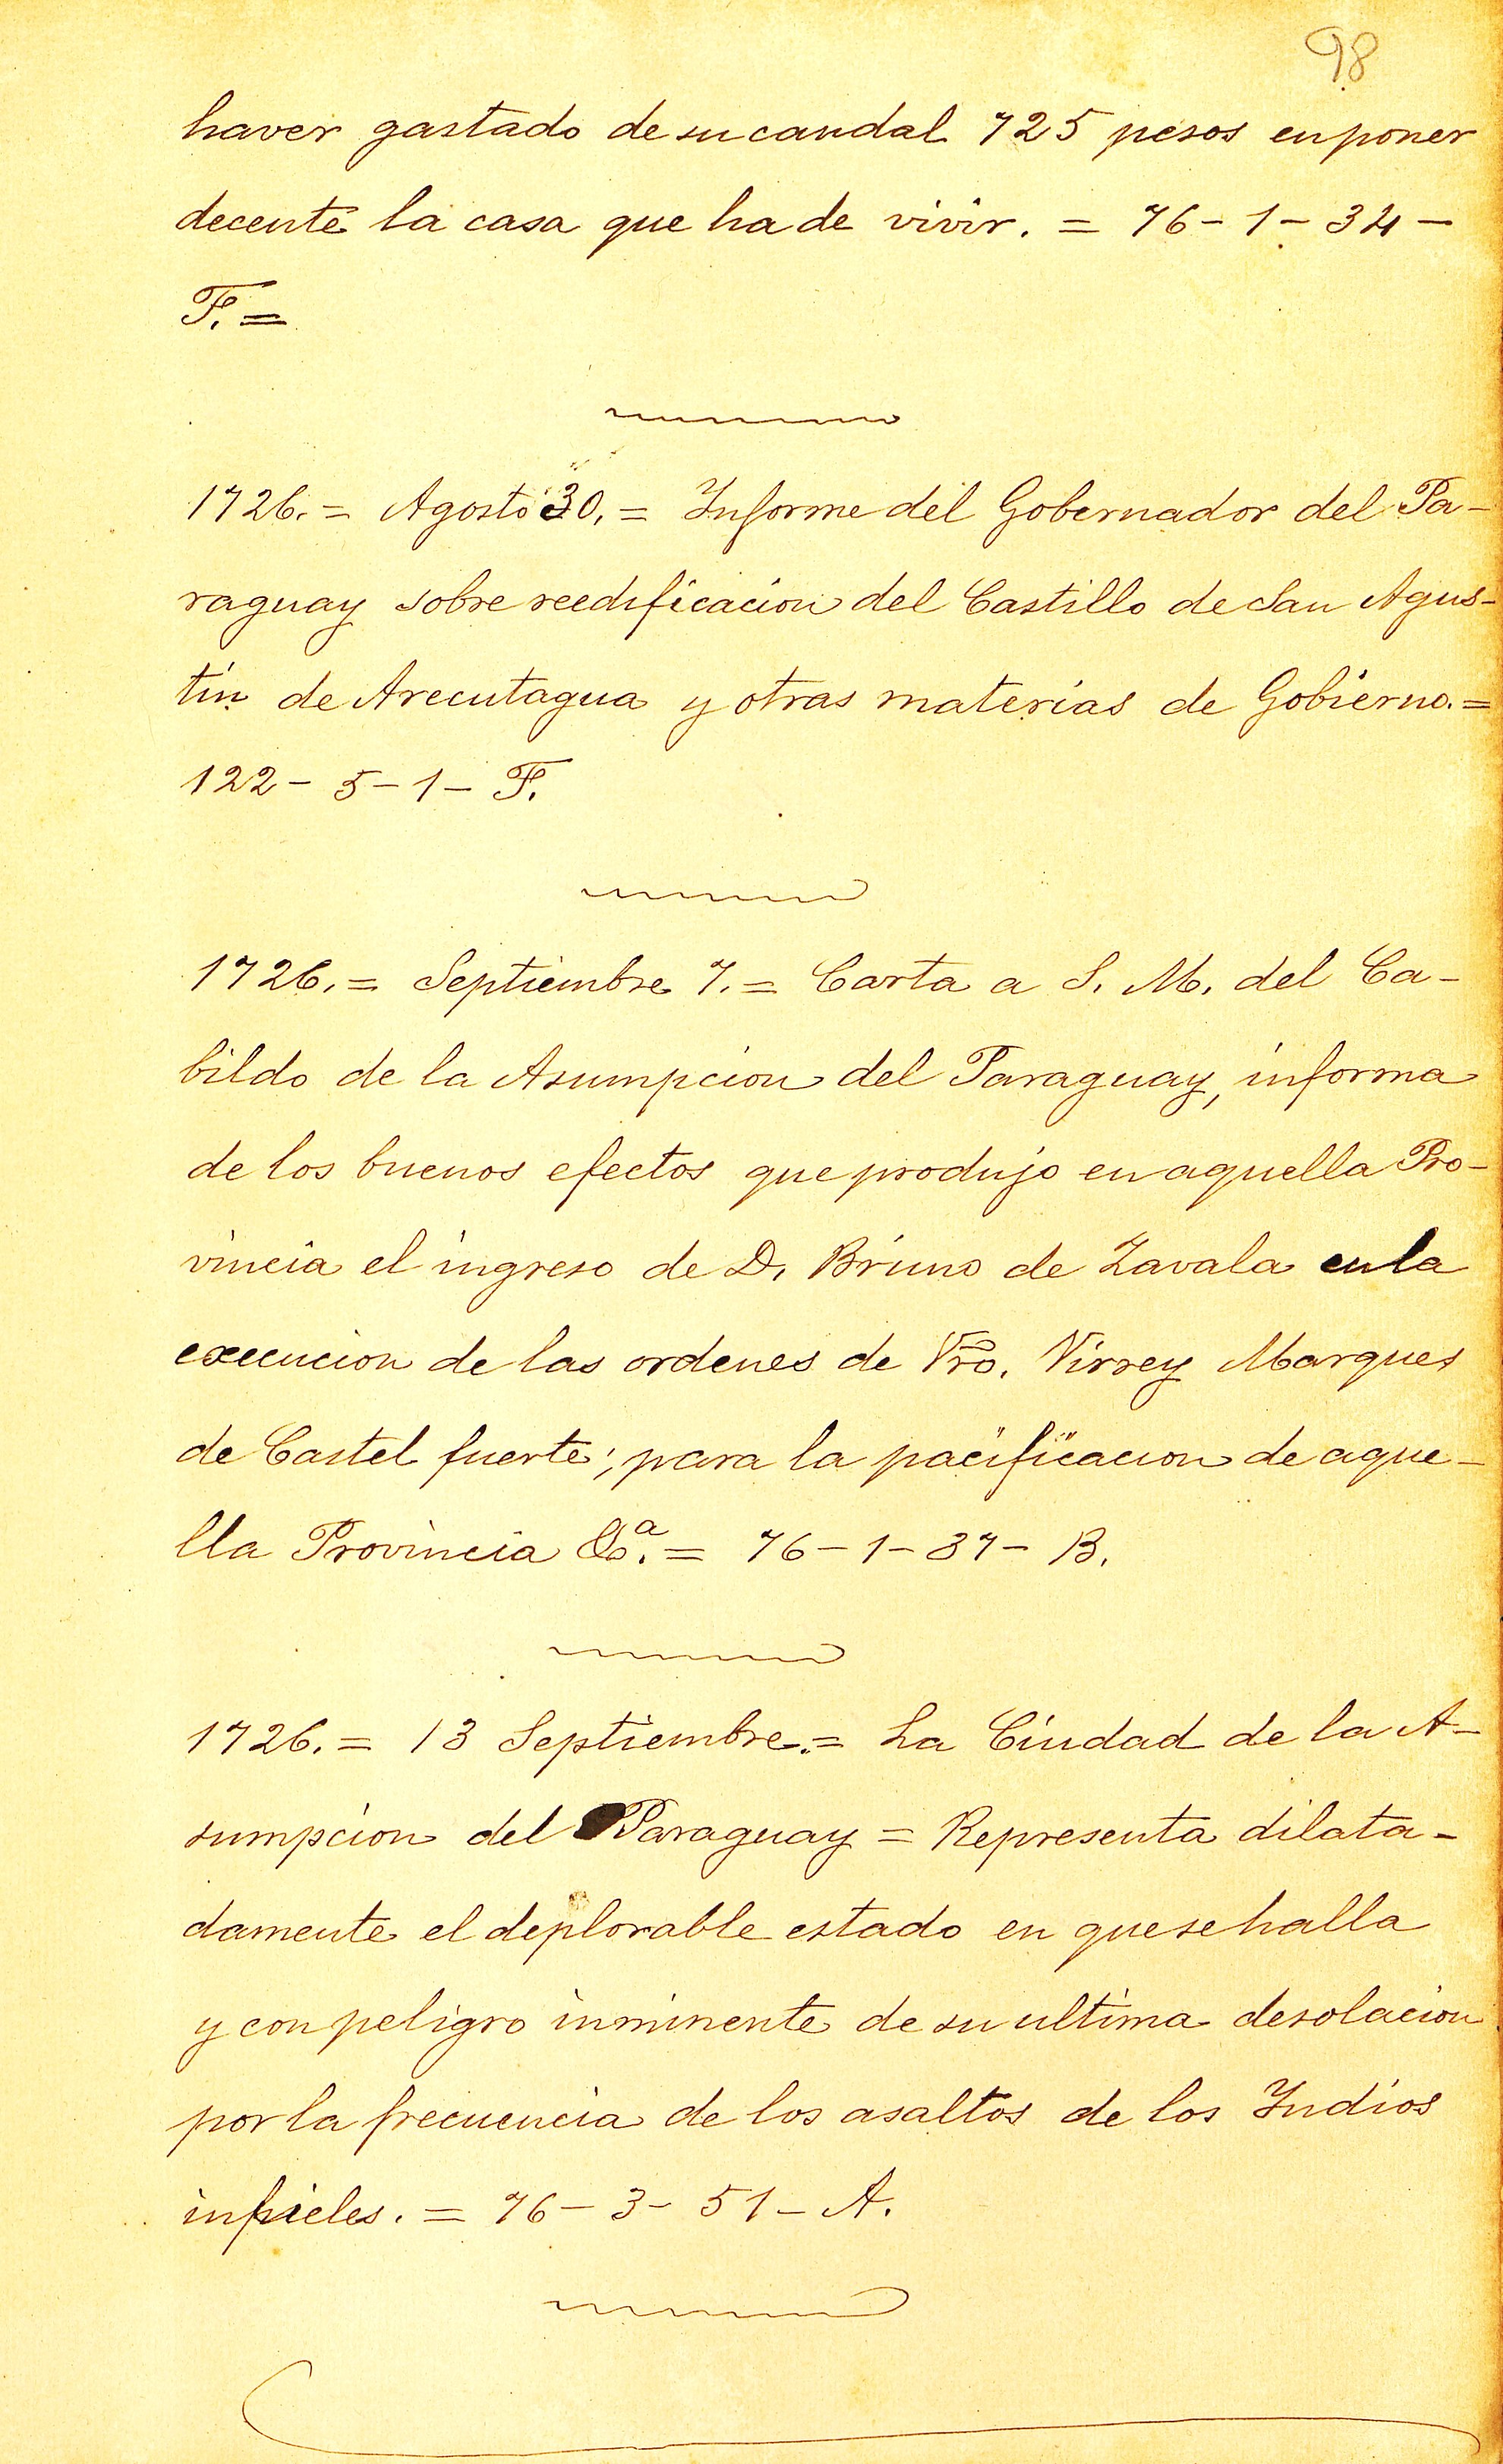 98
haver gastado de su caudal 725 pesos en poner
decente la casa que ha de vivir. = 76 - 1 - 34 -
F. =
1726. = Agosto 30. = Informe del Gobernador del Pa-
raguay sobre reedificacion del Castillo de San Agus-
tin de Arecutagua y otras materias de Gobierno. =
122 - 5 - 1 - F.
1726. = Septiembre 7. = Carta a S. M. del Ca-
bildo de la Asumpcion del Paraguay, informa
de los buenos efectos que produjo en aquella Pro-
vincia el ingreso de D. Bruno de Zavala en la
execucion de las ordenes de Vro. Virrey Marques
de Castel fuerte; para la pacificacion de aque-
lla Provincia &a. = 76 - 1 - 37 - B.
1726. = 13 Septiembre. = La Ciudad de la A-
sumpcion del Paraguay = Representa dilata-
damente el deplorable estado en que se halla
y con peligro inminente de su ultima desolacion
por la frecuencia de los asaltos de los Indios
infieles. = 76 - 3 - 51 - A.